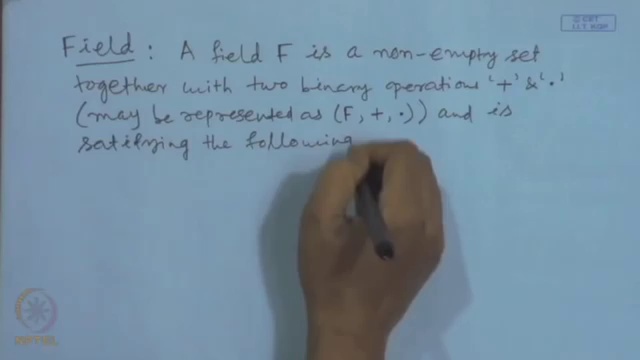 © CET
I.I.T. KGP
Field : A field F is a non-empty set
together with two binary operations '+' & '.'
(may be represented as (F, +, .)) and is
satisfying the following
NPTEL